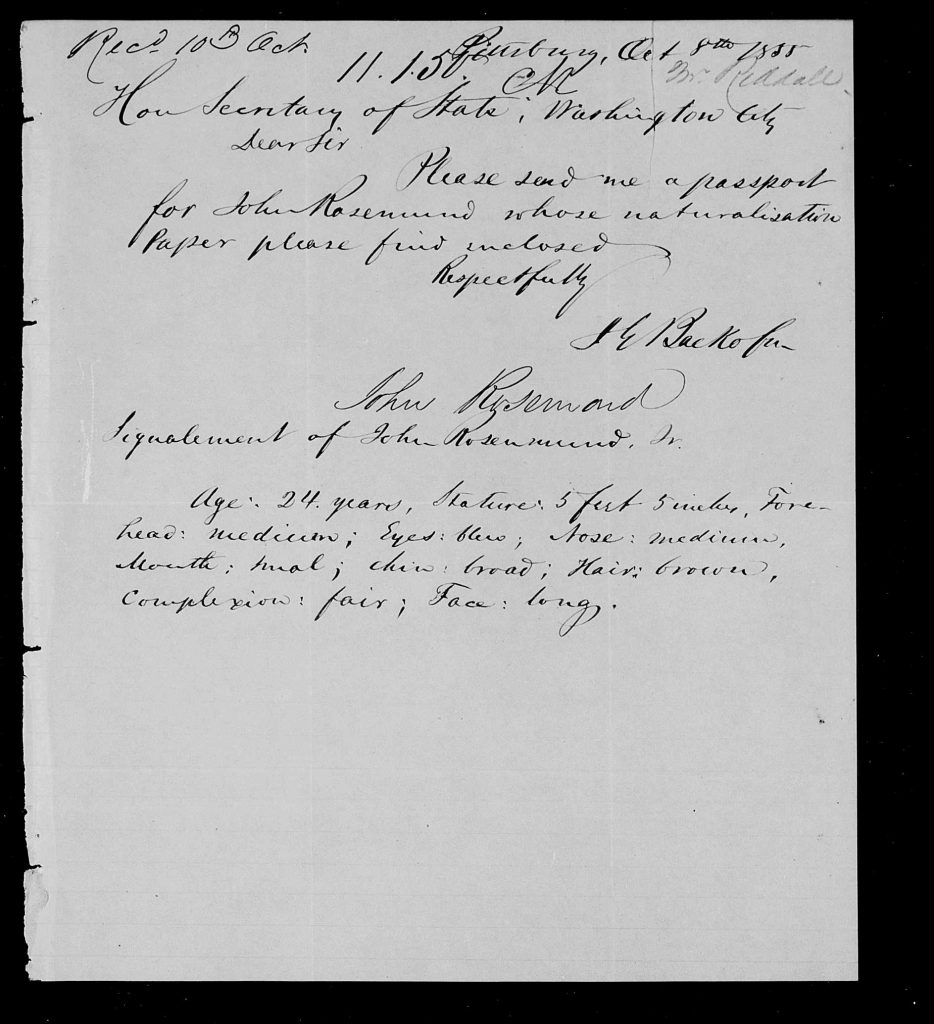 Recd 10th Oct.
Pittsburg, Oct 8th 1855
11.1.5
Mr. Reddall.
Hon Secretary of State, Washington City
Dear Sir
Please send me a passport
for John Rosemund whose naturalisation
Paper please find inclosed
Respectfully
Backofen
John Rosemond
Signalement of John Rosenmund, Jr.
Age: 24 years, Stature: 5 feet 5 inches, Fore-
head: medium; Eyes: bleu; Nose: medium,
Mouth: smal; chin: broad; Hair: brown,
Complexion: fair; Face: long.